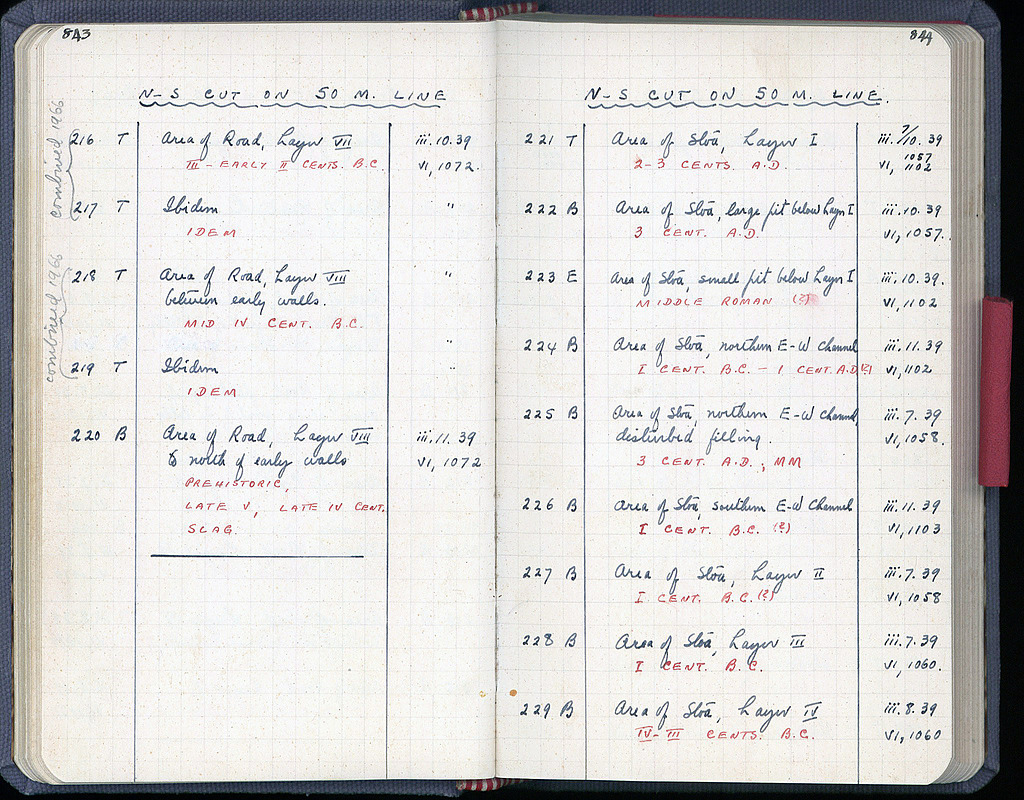 843
N-S CUT ON 50 M. LINE
combined 1966
216 T Area of Road, Layer VII iii.10.39
III - EARLY II CENTS. B.C. VI, 1072.
217 T Ibidem "
IDEM
combined 1966
218 T Area of Road, Layer VIII "
between early walls.
MID IV CENT. B.C.
"
219 T Ibidem "
IDEM
220 B Area of Road, Layer VIII iii.11.39
to north of early walls VI, 1072
PREHISTORIC,
LATE V, LATE IV CENT.
SLAG.
844
N-S CUT ON 50 M. LINE.
221 T Area of Stoā, Layer I iii. 7/10. 39
2-3 CENTS. A.D. VI, 1057 1102
222 B Area of Stoā, large pit below Layer I iii.10.39
3 CENT. A.D. VI, 1057.
223 E Area of Stoā, small pit below Layer I iii.10.39.
MIDDLE ROMAN (?) VI, 1102
224 B Area of Stoā, northern E-W Channel iii.11.39
I CENT. B.C. - I CENT. A.D.(?) VI, 1102
225 B Area of Stoā, northern E-W Channel, iii.7.39
disturbed filling. VI, 1058.
3 CENT. A.D., MM
226 B Area of Stoā, southern E-W Channel iii.11.39
I CENT. B.C. (?) VI, 1103
227 B Area of Stoā, Layer II iii.7.39
I CENT. B.C. (?) VI, 1058
228 B Area of Stoā, Layer III iii.7.39
I CENT. B.C. VI, 1060.
229 B Area of Stoā, Layer IV iii.8.39
IV-III CENTS. B.C. VI, 1060